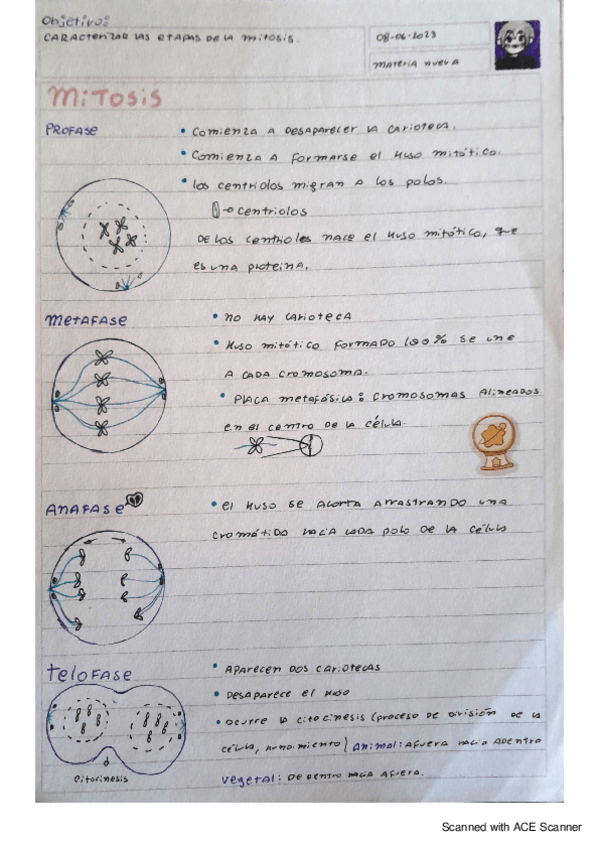 Objetivo:
CARACTERIZAR LAS ETAPAS DE LA MITOSIS.
08-06-2023
MATERIA NUEVA
MITOSIS
PROFASE
• COMIENZA A DESAPARECER LA CARIOTECA.
• COMIENZA A FORMARSE EL HUSO MITÓTICO.
• LOS CENTRIOLOS MIGRAN A LOS POLOS.
→ CENTRIOLOS
DE LOS CENTRIOLES NACE EL HUSO MITÓTICO, QUE
ES UNA PROTEINA.
METAFASE
• NO HAY CARIOTECA
• HUSO MITÓTICO FORMADO 100% SE UNE
A CADA CROMOSOMA.
• PLACA METAFÁSICA: CROMOSOMAS ALINEADOS
EN EL CENTRO DE LA CÉLULA.
ANAFASE
• EL HUSO SE ACORTA ARRASTRANDO UNA
CROMÁTIDA HACIA CADA POLO DE LA CÉLULA
TELOFASE
• APARECEN DOS CARIOTECAS
• DESAPARECE EL HUSO
• OCURRE LA CITOCINESIS (PROCESO DE DIVISIÓN DE LA
CÉLULA, HUNDIMIENTO) ANIMAL: AFUERA HACIA ADENTRO
VEGETAL: DE DENTRO HACIA AFUERA.
Citocinesis
Scanned with ACE Scanner